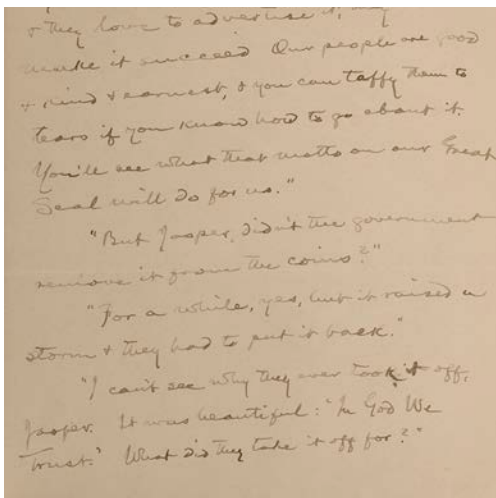 & they love to advertise it, & they
make it succeed Our people are good
& kind & earnest, & you can taffy them to
tears if you know how to go about it.
You'll see what that motto on our Great
Seal will do for us."
"But Jasper, didn't the government
remove it from the coins?"
"For a while, yes, but it raised a
storm & they had to put it back."
"I can't see why they ever took it off,
Jasper. It was beautiful: 'In God We
Trust.' What did they take it off for?"